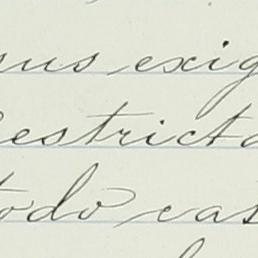 sus exig
estricta
todo cas